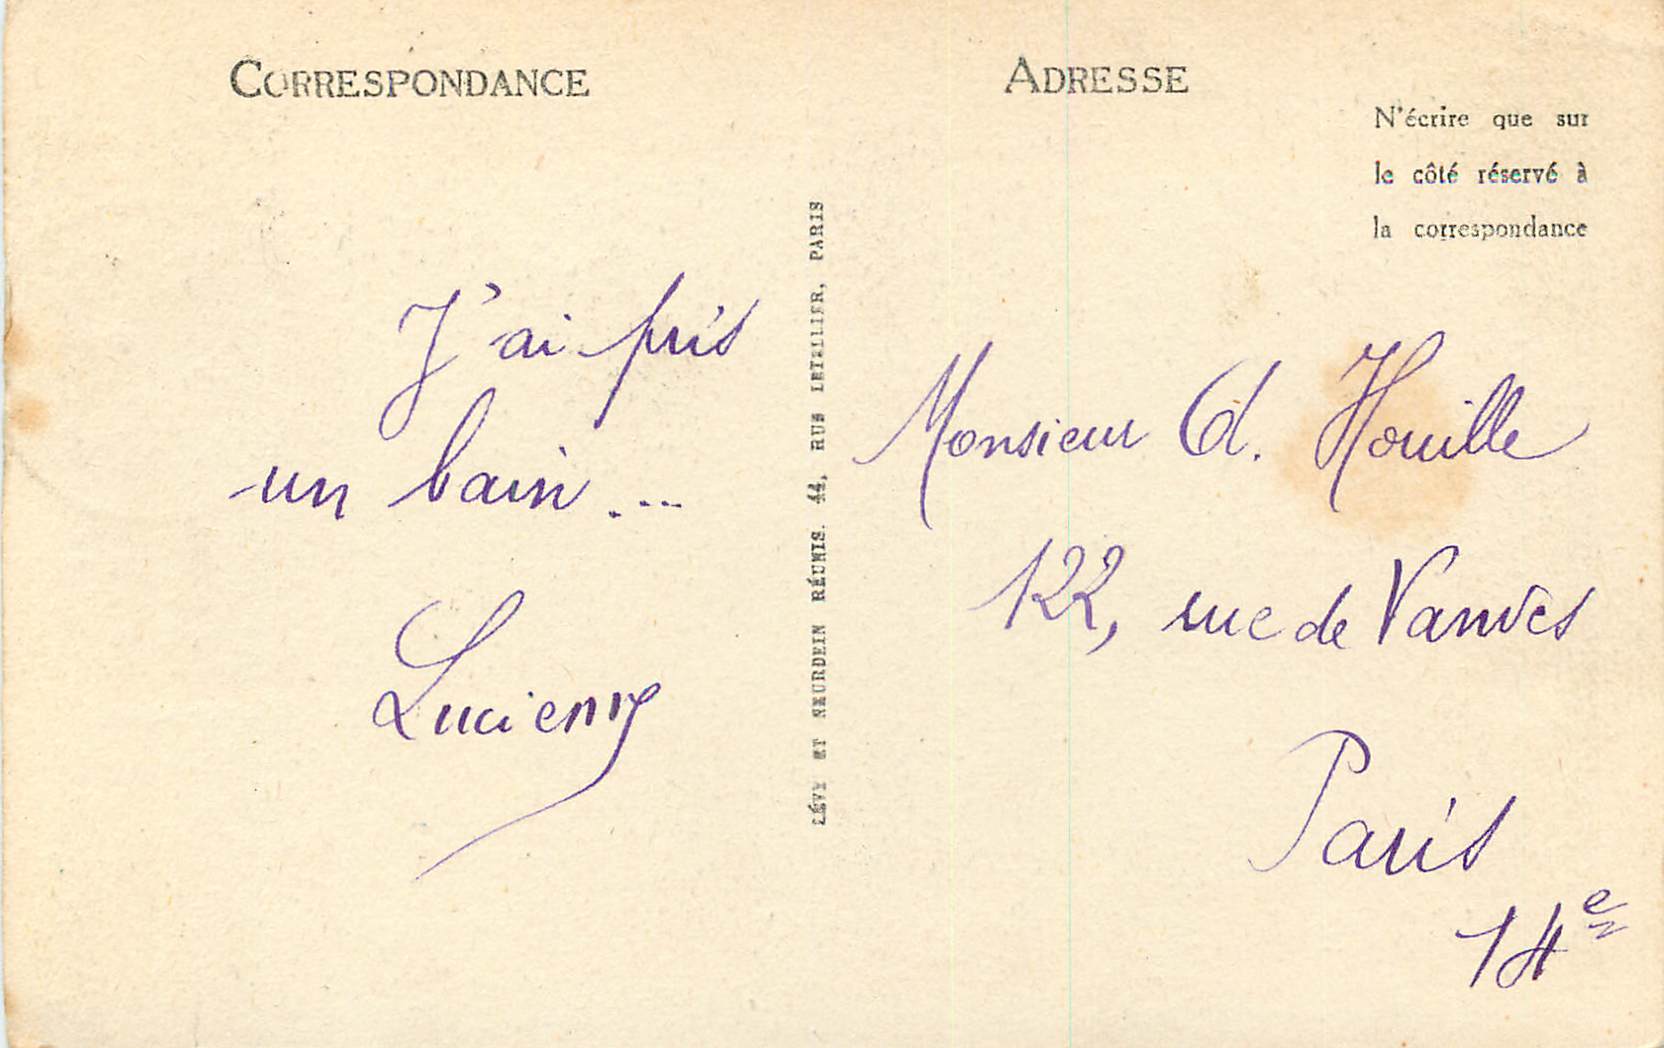 CORRESPONDANCE
J'ai pris
un bain...
Lucieny
LÉVY ET NEURDEIN RÉUNIS. 44, RUE LETELLIER, PARIS
ADRESSE
N'écrire que sur
le côté réservé à
la correspondance
Monsieur d. Houille
122, rue de Vanves
Paris
14e